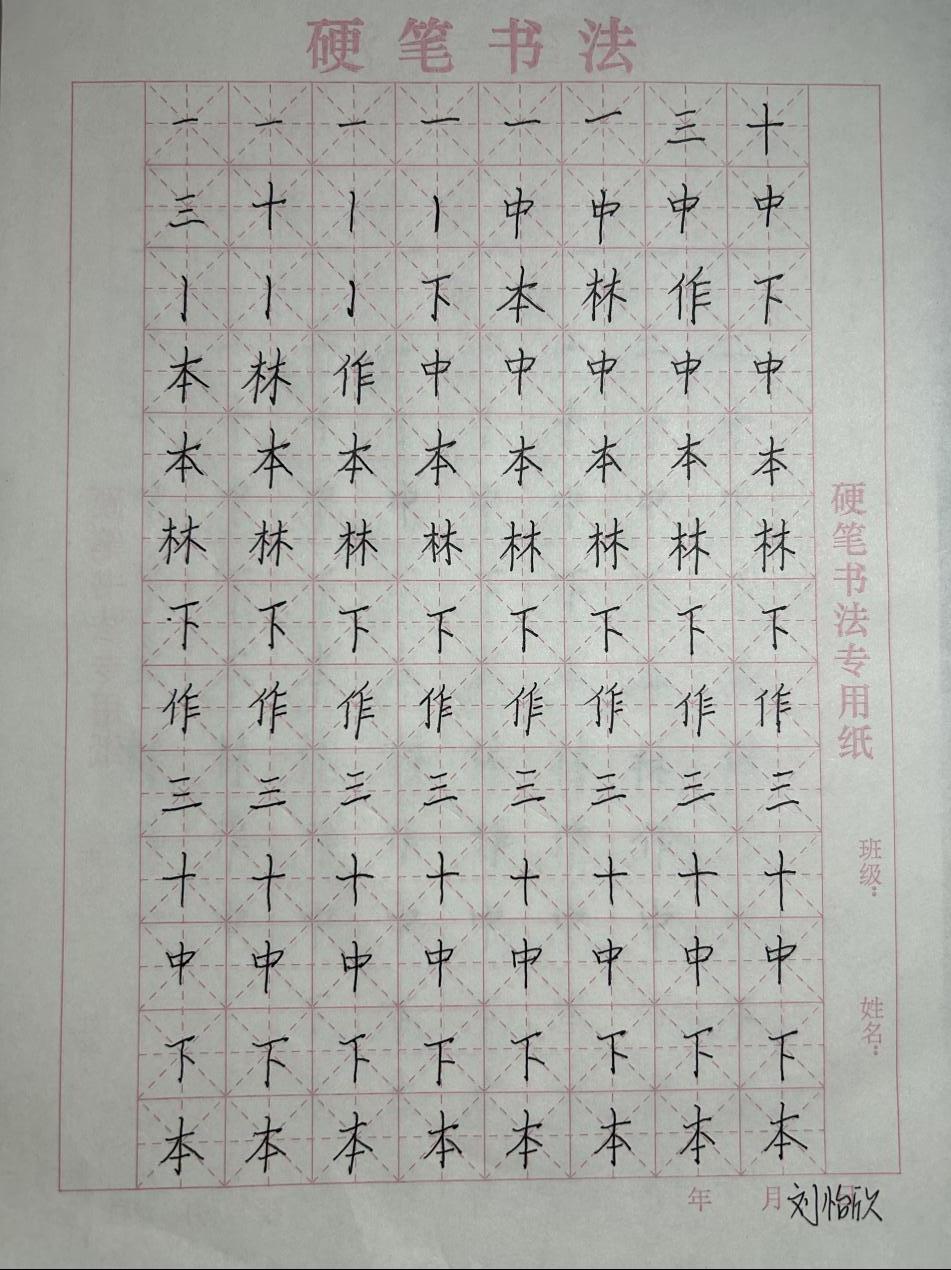 硬笔书法
一 一 一 一 一 一 三 十
三 十 丨 丨 中 中 中 中
丨 丨 丨 下 本 林 作 下
本 林 作 中 中 中 中 中
本 本 本 本 本 本 本 本
林 林 林 林 林 林 林 林
下 下 下 下 下 下 下 下
作 作 作 作 作 作 作 作
三 三 三 三 三 三 三 三
十 十 十 十 十 十 十 十
中 中 中 中 中 中 中 中
下 下 下 下 下 下 下 下
本 本 本 本 本 本 本 本
硬笔书法专用纸
班级：
姓名：
年 月 日
刘怡欣